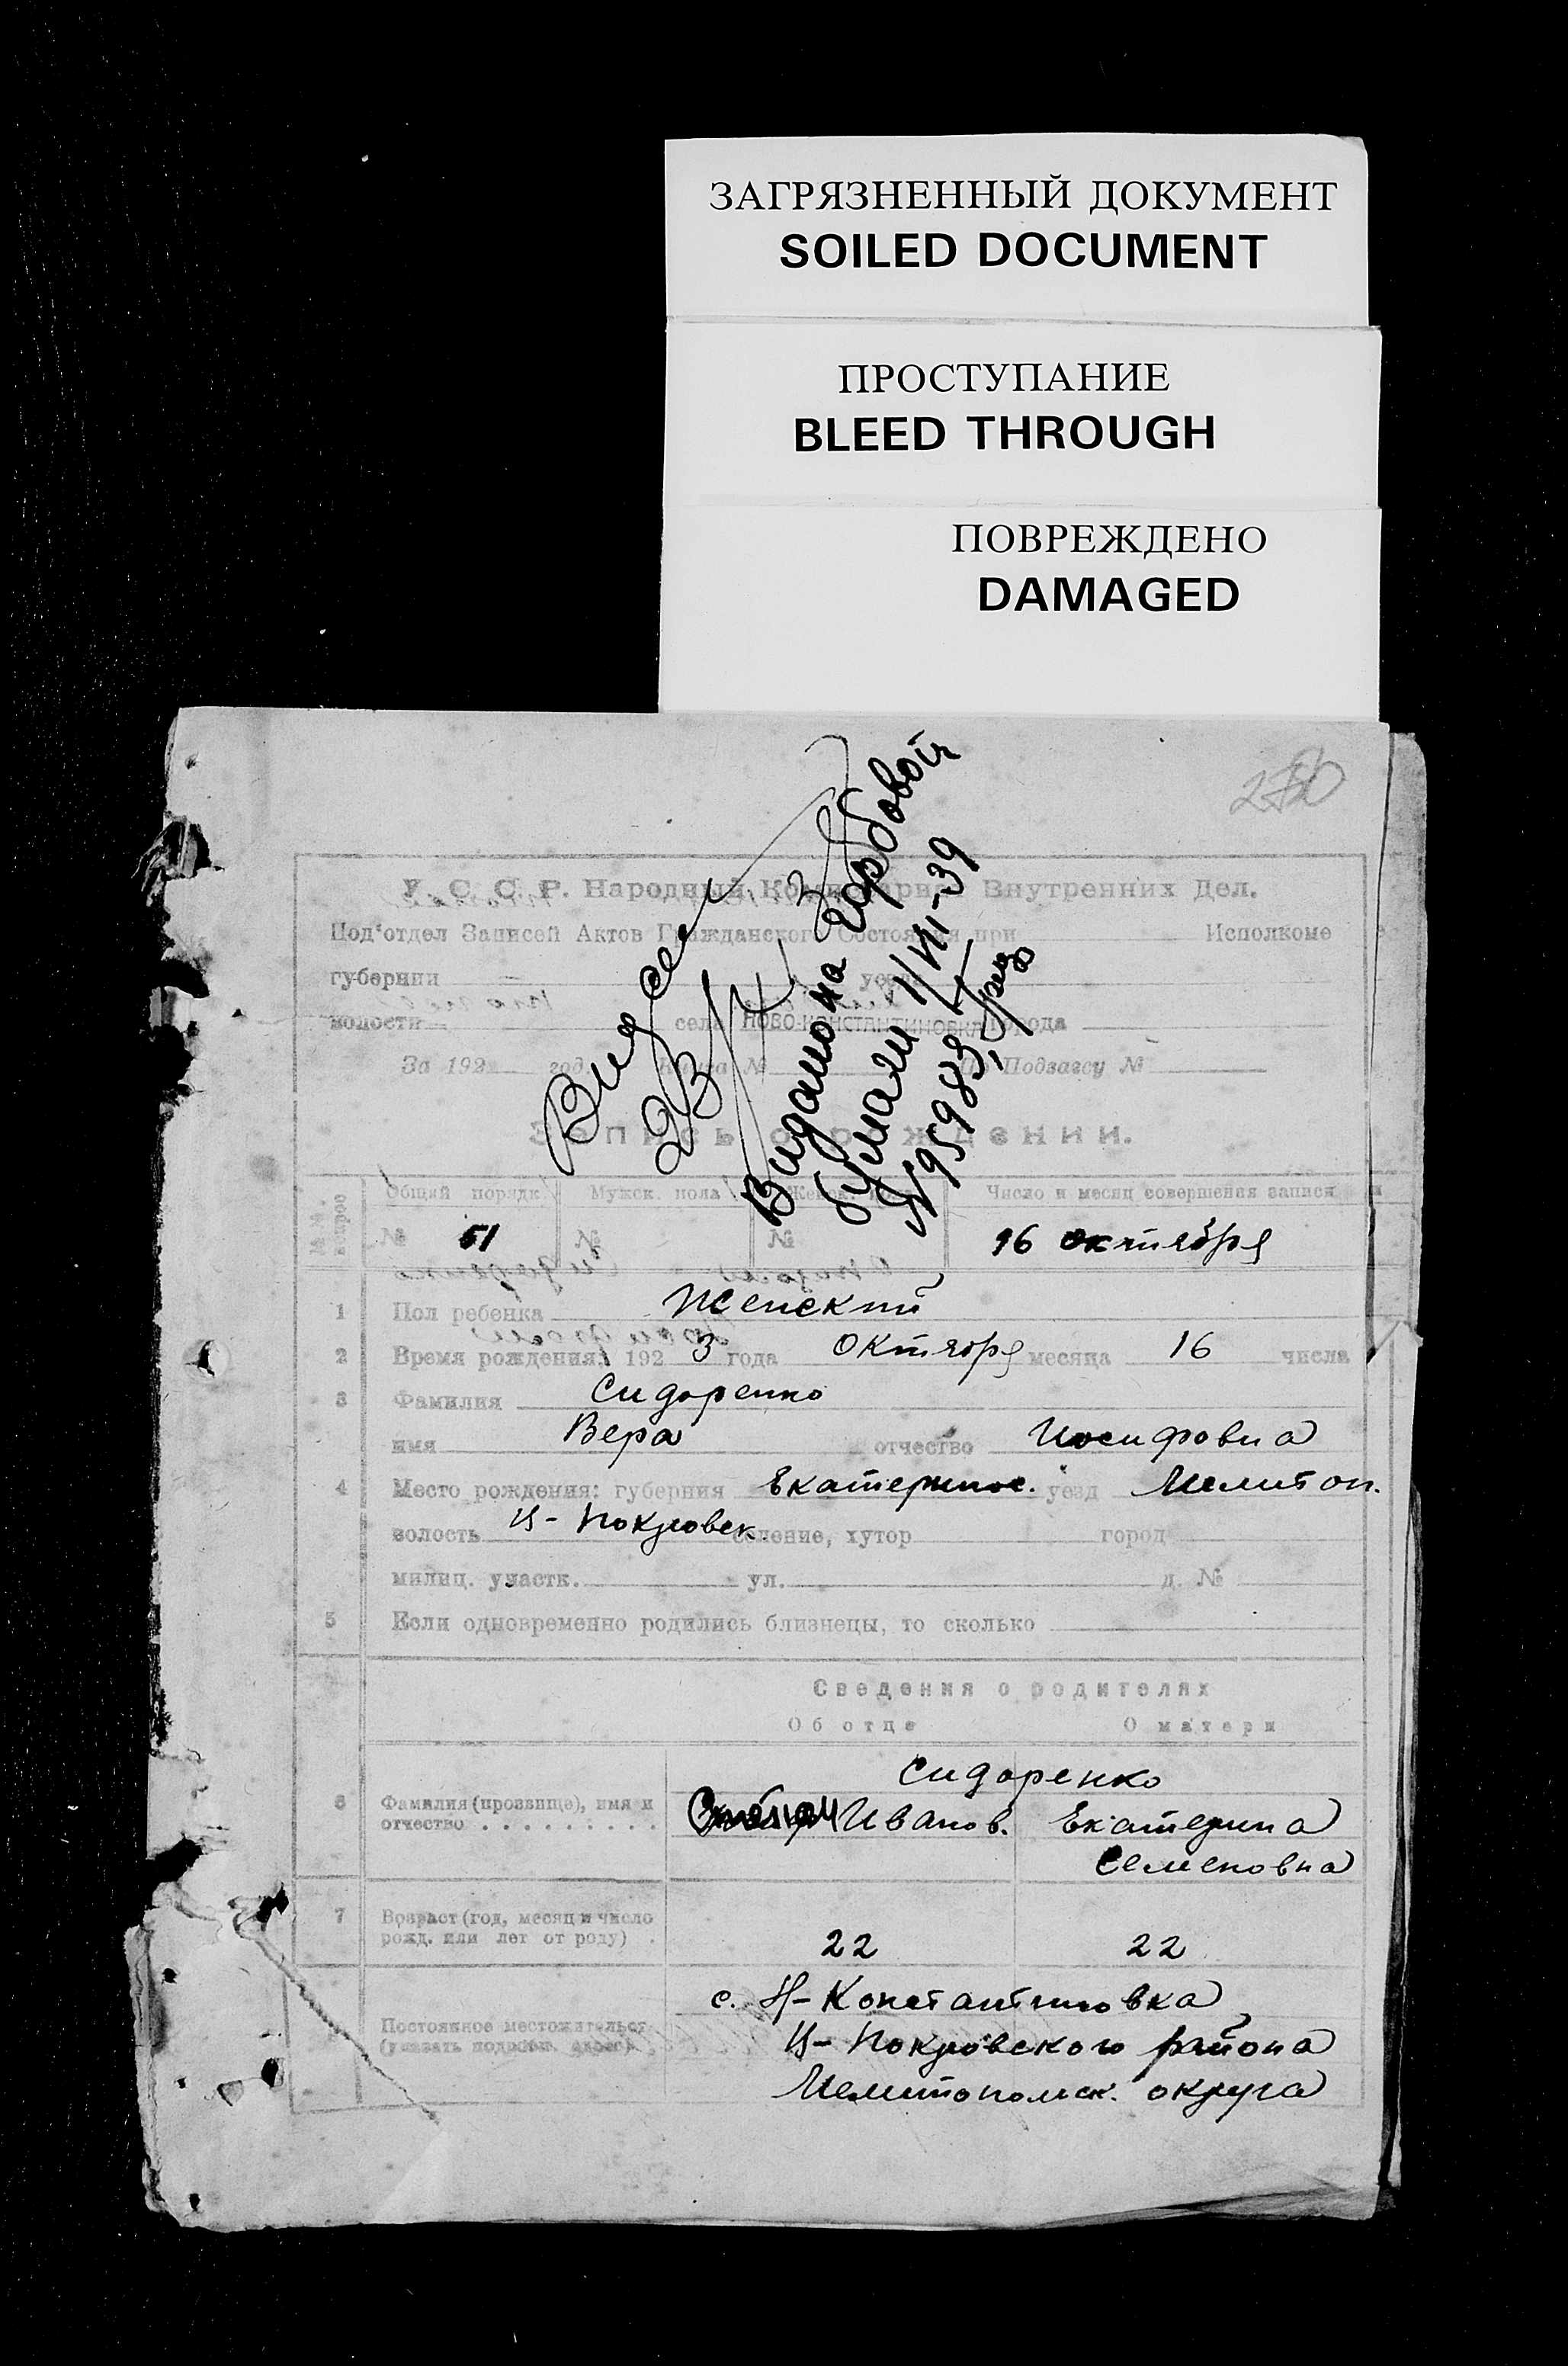 ЗАГРЯЗНЕННЫЙ ДОКУМЕНТ
SOILED DOCUMENT
ПРОСТУПАНИЕ
BLEED THROUGH
ПОВРЕЖДЕНО
DAMAGED
Видано на гербовой
бумаги 1/VII-39
N95983
У. С. С. Р. Народный Комиссариат Внутренних Дел.
Под'отдел Записей Актов Гражданского Состояния при Исполкоме
губернии
волости села НОВО-КОНСТАНТИНОВКА города
За 192 год. Книга № По Подзагсу №
Запись о рождении.
Общий порядк. Мужск. пола Женск. пола Число и месяц совершения записи
№ 51 № № 16 октября
1 Пол ребенка Женский
2 Время рождения: 192 3 года Октября месяца 16 числа
3 Фамилия Сидоренко
имя Вера отчество Иосифовна
4 Место рождения: губерния Екатеринос. уезд Мелитоп.
волость Ц-Покровск. селение, хутор город
милиц. участк. ул. д. №
5 Если одновременно родились близнецы, то сколько
Сведения о родителях
Об отце О матери
Сидоренко
6 Фамилия (прозвище), имя и
отчество Иванов. Екатерина
Семеновна
7 Возраст (год, месяц и число
рожд. или лет от роду) 22 22
с. Н-Константиновка
Постоянное местожителься
(указать подробн. адрес) Ц-Покровского района
Мелитопольск. округа